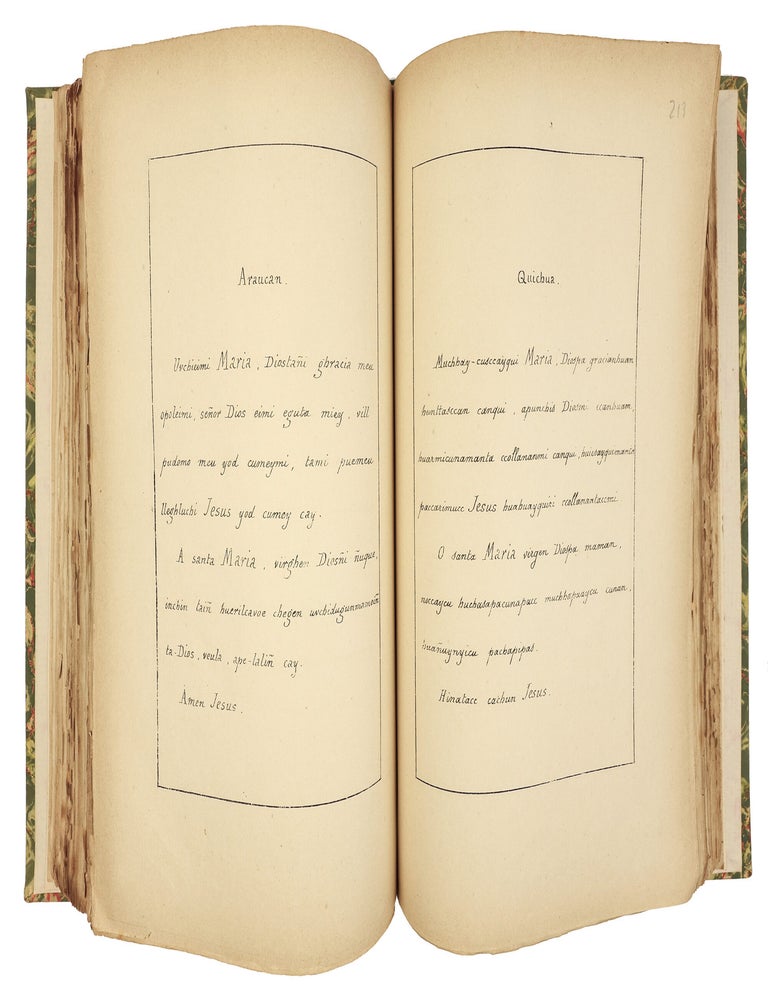 Araucan.
Uvchieimi Maria, Diostañi ghracia meu
opoleimi, señor Dios eimi eguta miey, vill
pudomo meu yod cumeymi, tami puemeu
lleghluchi Jesus yod cumey cay.
A santa Maria, virghen Diosñi ñuque,
inchin taiñ huerilcavoe chegen uvchidugunmamoiñ
ta-Dios, veula, ape-laliñ cay.
Amen Jesus.
213
Quichua.
Muchhay-cusccayqui Maria, Diospa gracianhuan
hunttasccan canqui, apunchis Diosmi ccanhuan,
huarmicunamanta ccollananmi canqui, huicsayquimanta
paccarimucc Jesus huahuayquiri ccollanantaccmi.
O santa Maria virgen Diospa maman,
noccaycu huchasapacunapacc muchhapuaycu cunan,
huañuyniycu pachapipas.
Hinatacc cachun Jesus.